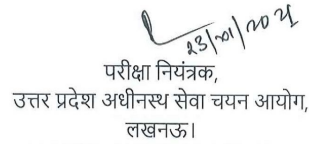 23/01/2024
परीक्षा नियंत्रक,
उत्तर प्रदेश अधीनस्थ सेवा चयन आयोग,
लखनऊ।